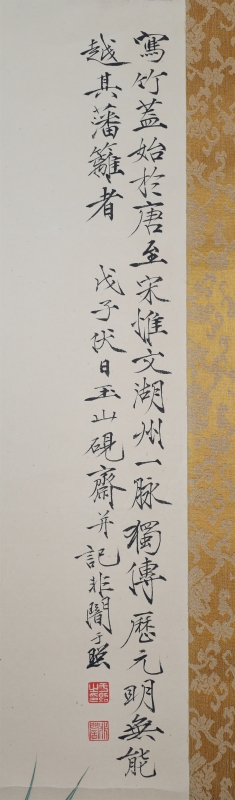 寫竹蓋始於唐至宋惟文湖州一脉獨傳歷元明無能
越其藩籬者　戊子伏日玉山硯齋并記非闇于照